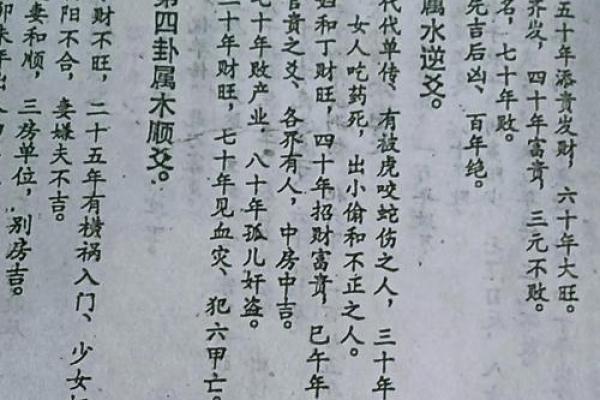 五十年添贵发财，六十年大旺。
齐发，四十年富贵，三元不败。
名，七十年败。
先吉后凶、百年绝。
属水逆爻。
代代单传、有被虎咬蛇伤之人，三十年
女人吃药死，出小偷和不正之人。
和丁财旺，四十年招财富贵，巳午年
贵之爻、各界有人，中房中吉。
七十年败产业，八十年孤儿奸盗。
二十年财旺，七十年见血灾、犯六甲亡。
第四卦属木顺爻。
财不旺，二十五年有横祸入门、少女
阳不合，妻嫌夫不吉。
妻和顺，三房单位，别房吉。